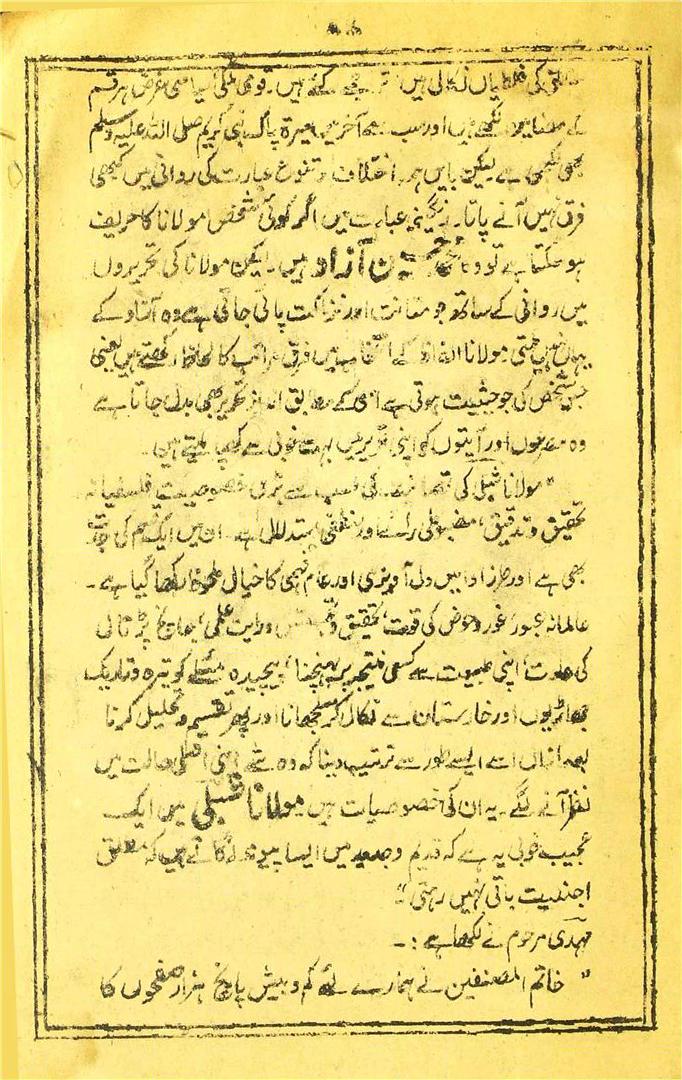 کی غلطیاں نکالی ہیں، ترجمے کئے ہیں۔ قومی ملکی سیاسی غرض ہر قسم
کے مضامین لکھے ہیں اور سب سے آخر میں سیرۃ پاک نبی کریم صلی اللہ علیہ وسلم
بھی لکھی ہے لیکن بایں ہمہ اختلاف و تنوع عبارت کی روانی میں کبھی
فرق نہیں آنے پاتا۔ رنگینی عبارت میں اگر کوئی شخص مولانا کا حریف
ہو سکتا ہے تو وہ محمد حسین آزاد ہیں۔ لیکن مولانا کی تحریروں
میں روانی کے ساتھ جو متانت اور نزاکت پائی جاتی ہے وہ آزاد کے
یہاں نہیں ملتی مولانا الفاظ کے انتخاب میں فرق مراتب کا لحاظ رکھتے ہیں یعنی
جس شخص کی جو حیثیت ہوتی ہے اسی کے مطابق انداز تحریر بھی بدل جاتا ہے
وہ مصرعوں اور آیتوں کو اپنی تحریر میں بہت خوبی سے کھپا لیتے ہیں۔
"مولانا شبلی کی تصانیف کی سب سے بڑی خصوصیت فلسفیانہ
تحقیق و تدقیق، مضبوطی رائے اور منطقی استدلال ہے۔ ان میں ایک قسم کی
بھی ہے اور طرز ادا میں دل آویزی اور عام فہمی کا خیال ملحوظ رکھا گیا ہے۔
عالمانہ عبور، غور و خوض کی قوت، تحقیق و درایت علمی، جانچ پڑتال
کی عادت، اپنی طبیعت سے کسی نتیجہ پر پہنچنا، پیچیدہ مسئلے کو تیرہ و تاریک
جھاڑیوں اور خارستان سے نکال کر سلجھانا اور پھر تقسیم و تحلیل کرنا
بعد ازاں اسے ایسے طور سے ترتیب دینا کہ وہ شے اپنی اصلی حالت میں
نظر آنے لگے۔ یہ ان کی خصوصیات ہیں مولانا شبلی میں ایک
عجیب خوبی یہ ہے کہ قدیم و جدید میں ایسا پیوند لگاتے ہیں کہ مطلق
اجنبیت باقی نہیں رہتی"
مہدی مرحوم نے لکھا ہے :۔
"خاتم المصنفین نے ہمارے لئے کم و بیش پانچ ہزار صفحوں کا